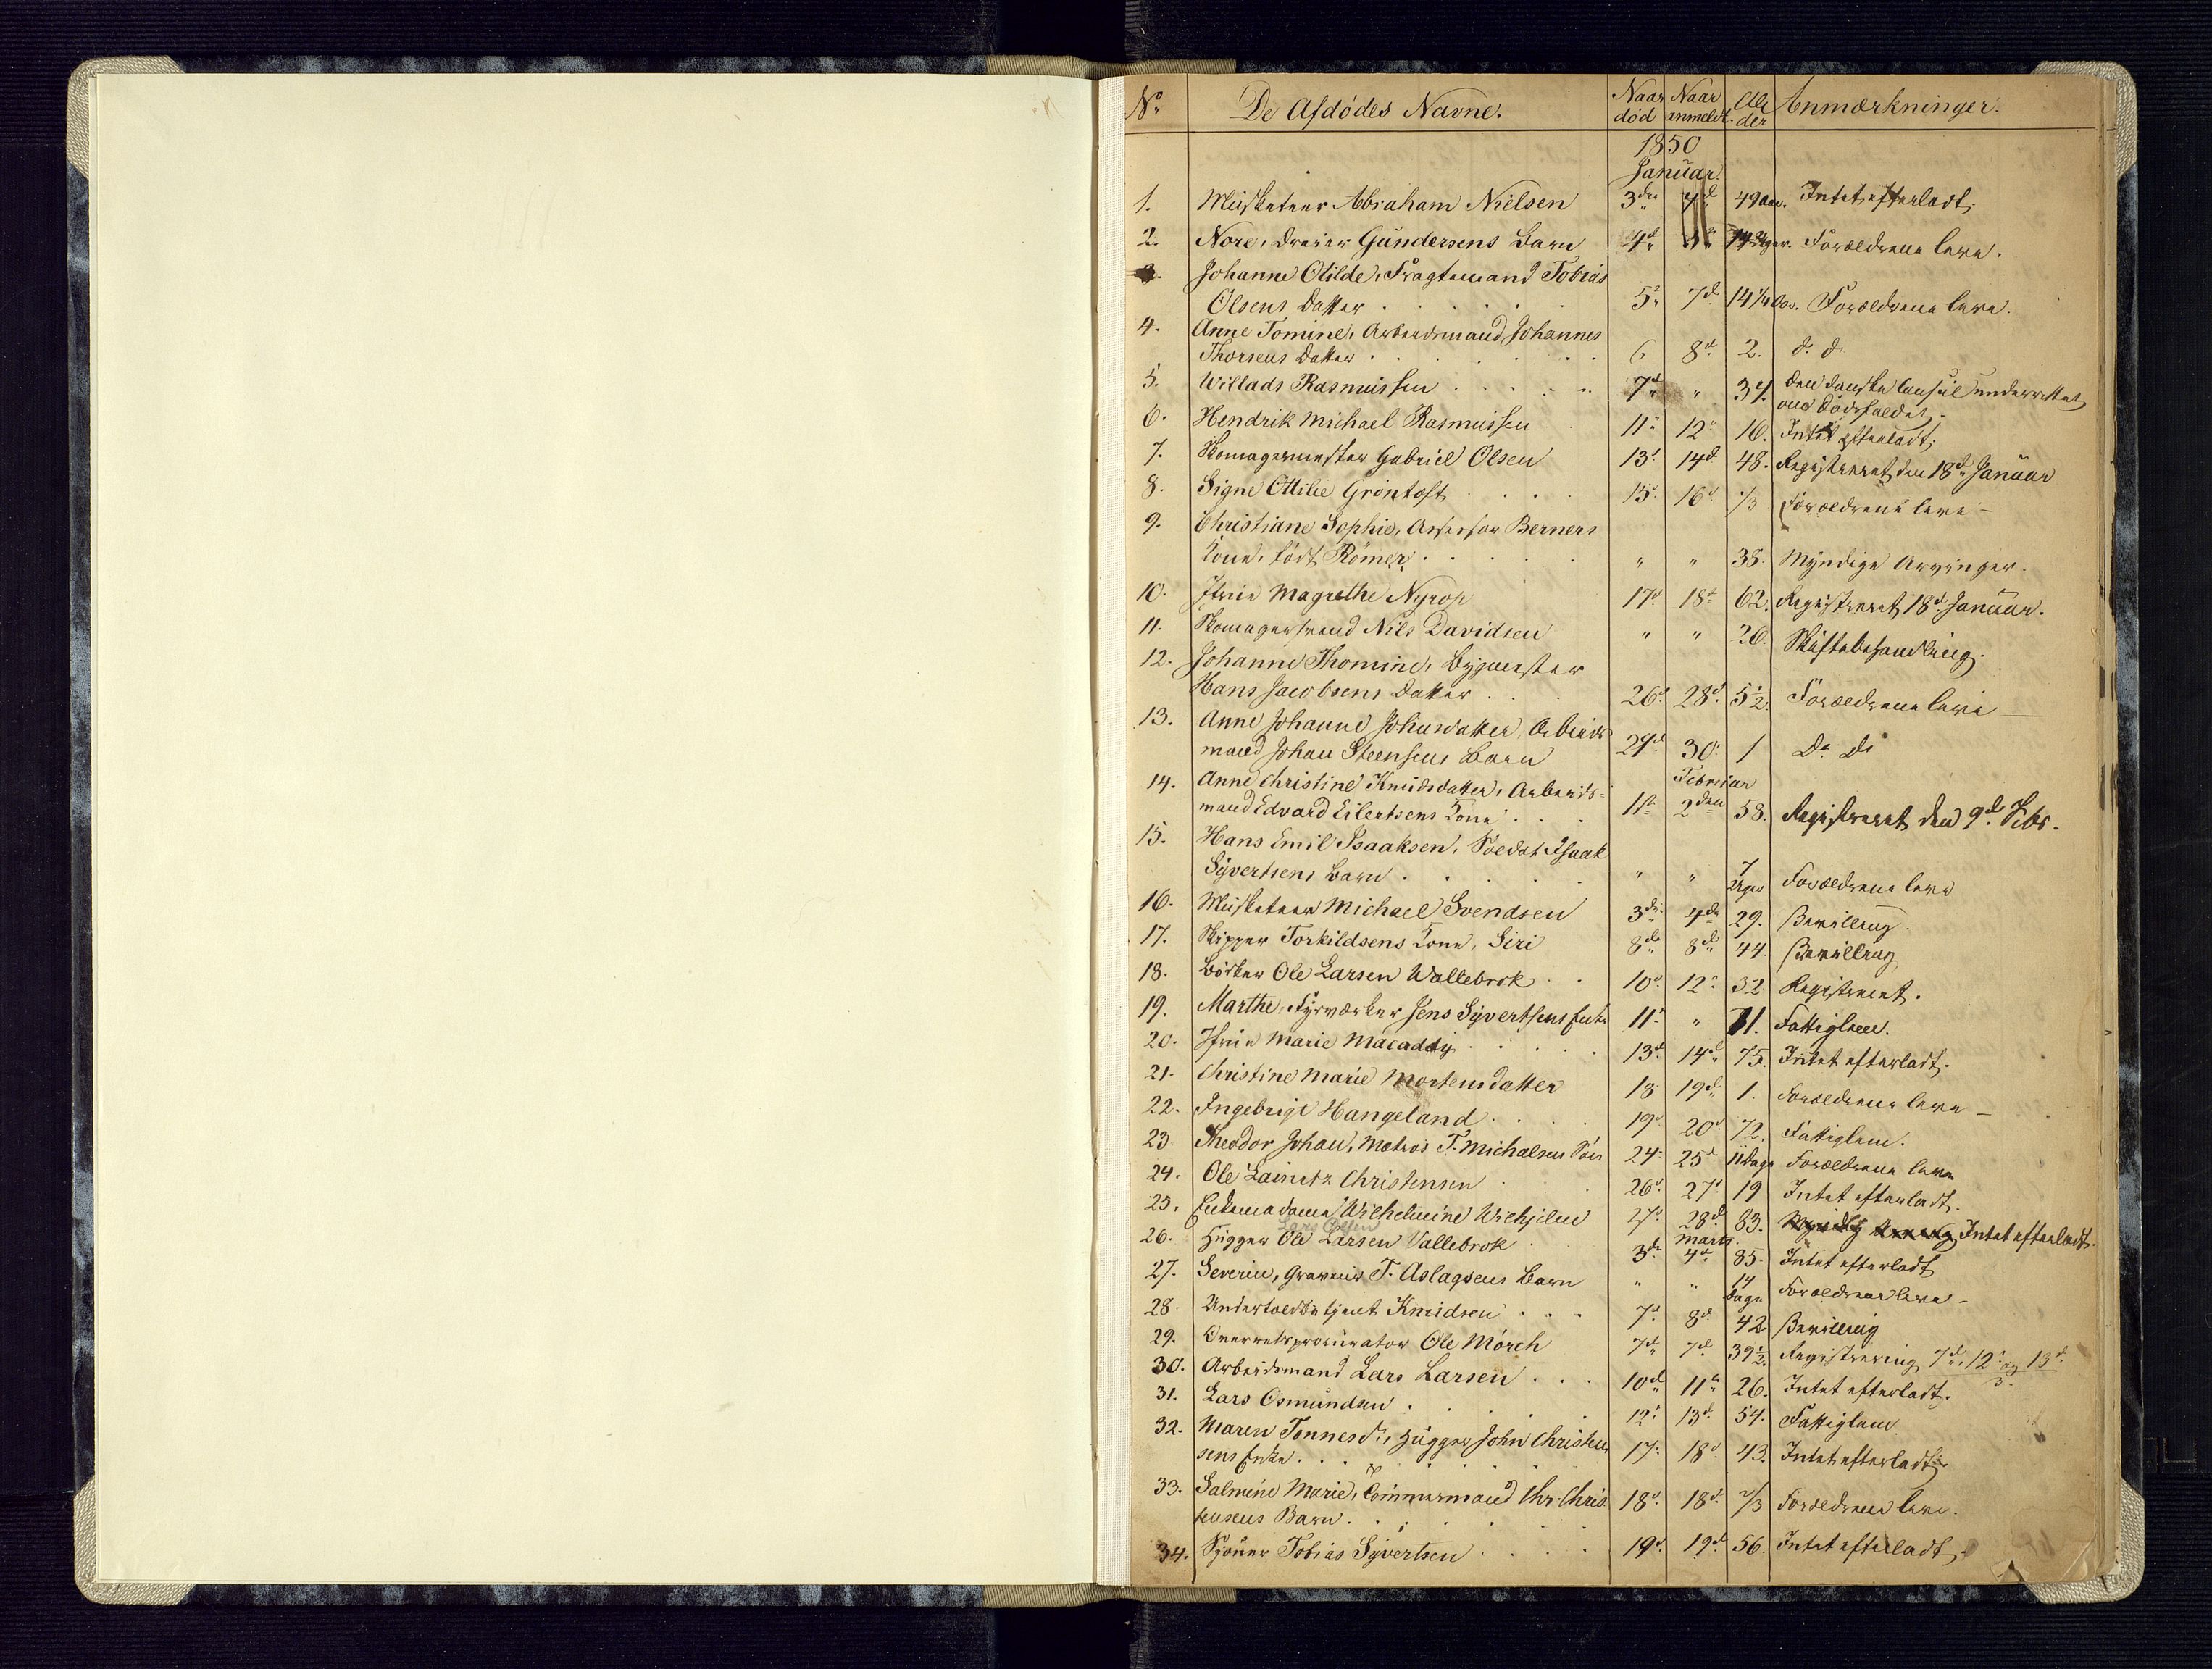 No De Afdödes Navne. Naar död Naar anmeldt. Alder Anmærkninger.
1850
Januar.
1. Musketeer Abraham Nielsen 3die 4de 49 Aar. Intet efterladt.
2. Nore, Dreier Gundersens Barn 4de Uger. Forældrene leve.
3. Johanne Otilde, Fragtemand Tobias
Olsens Datter 5te 7de 14 1/4 Aar. Forældrene leve.
4. Anne Tomine, Arbeidsmand Johannes
Thorsens Datter 6 8de 2. do do
5. Willads Rasmussen 7de " 34. Den danske Consul underrettet
om Dödsfaldet.
6. Hendrik Michael Rasmussen 11te 12te 16. Intet efterladt.
7. Skomagermester Gabriel Olsen 13de 14de 48. Registreret den 18de Januar
8. Signe Ottilie Gröntoft 15de 16de 1/3 Forældrene leve –
9. Christiane Sophie, Assessor Berners
Kone, födt Römer " " 38. Myndige Arvinger.
10. Jfrue Magrethe Nyrop 17de 18de 62. Registreret 18de Januar.
11. Skomagersvend Nils Davidsen " " 26. Skiftebehandling.
12. Johanne Thomine, Bygmester
Hans Jacobsens Datter 26de 28de 5 1/2. Forældrene leve –
13. Anne Johanne Johnsdatter, Arbeids
mand Johan Steensens Barn 29de 30te 1 Do Do
Februar
14. Anne Christine Knudsdatter, Arbeids-
mand Edvard Eilertsens Kone 1ste 2den 58. Registreret den 9de Febr.
15. Hans Emil Isaaksen, Soldat Isaak
Syvertsens Barn " " 7 Uger Forældrene leve
16. Musketeer Michael Svendsen 3die 4de 29. Bevilling.
17. Skipper Torkildsens Kone, Siri 8de 8de 44. Bevilling
18. Bödker Ole Larsen Wallebrok 10de 12te 32 Registreret.
19. Marthe, Fyrværker Jens Syvertsens Enke 11te " 71. Fattiglem.
20. Jfrue Marie Macaddy 13de 14de 75. Intet efterladt.
21. Christine Marie Mortensdatter 18 19de 1. Forældrene leve –
22. Ingebrigt Hangeland 19de 20de 72. Fattiglem.
23 Theodor Johan, Matros T. Michalsens Sön 24de 25de 11 Dage Forældrene leve
24. Ole Lauritz Christensen 26de 27de 19 Intet efterladt.
25. Enkemadame Wilhelmine 27de 28de 83. Intet efterladt.
Lars Olsen
Marts.
26. Hugger Ole Larsen Vallebrok 3die 4de 85. Intet efterladt
27. Severin, Graveur T. Aslagsens Barn " " 14 Dage Forældrene leve –
28. Undertoldbetjent Knudsen 7de 8de 42 Bevilling
29. Overretsprocurator Ole Mörch 7de 7de 39 1/2. Registrering 7de, 12te og 13de
30. Arbeidsmand Lars Larsen 10de 11te 26. Intet efterladt.
31. Lars Osmundsen 12te 13de 54. Fattiglem
32. Maren Tönnesdr., Hugger John Christen
sens Enke 17de 18de 43. Intet efterladt
33. Salmine Marie, Tömmermand Chr. Chris
tensens Barn 18de 18de 2/3 Forældrene leve.
34. Sjouer Tobias Syvertsen 19de 19de 56. Intet efterladt.